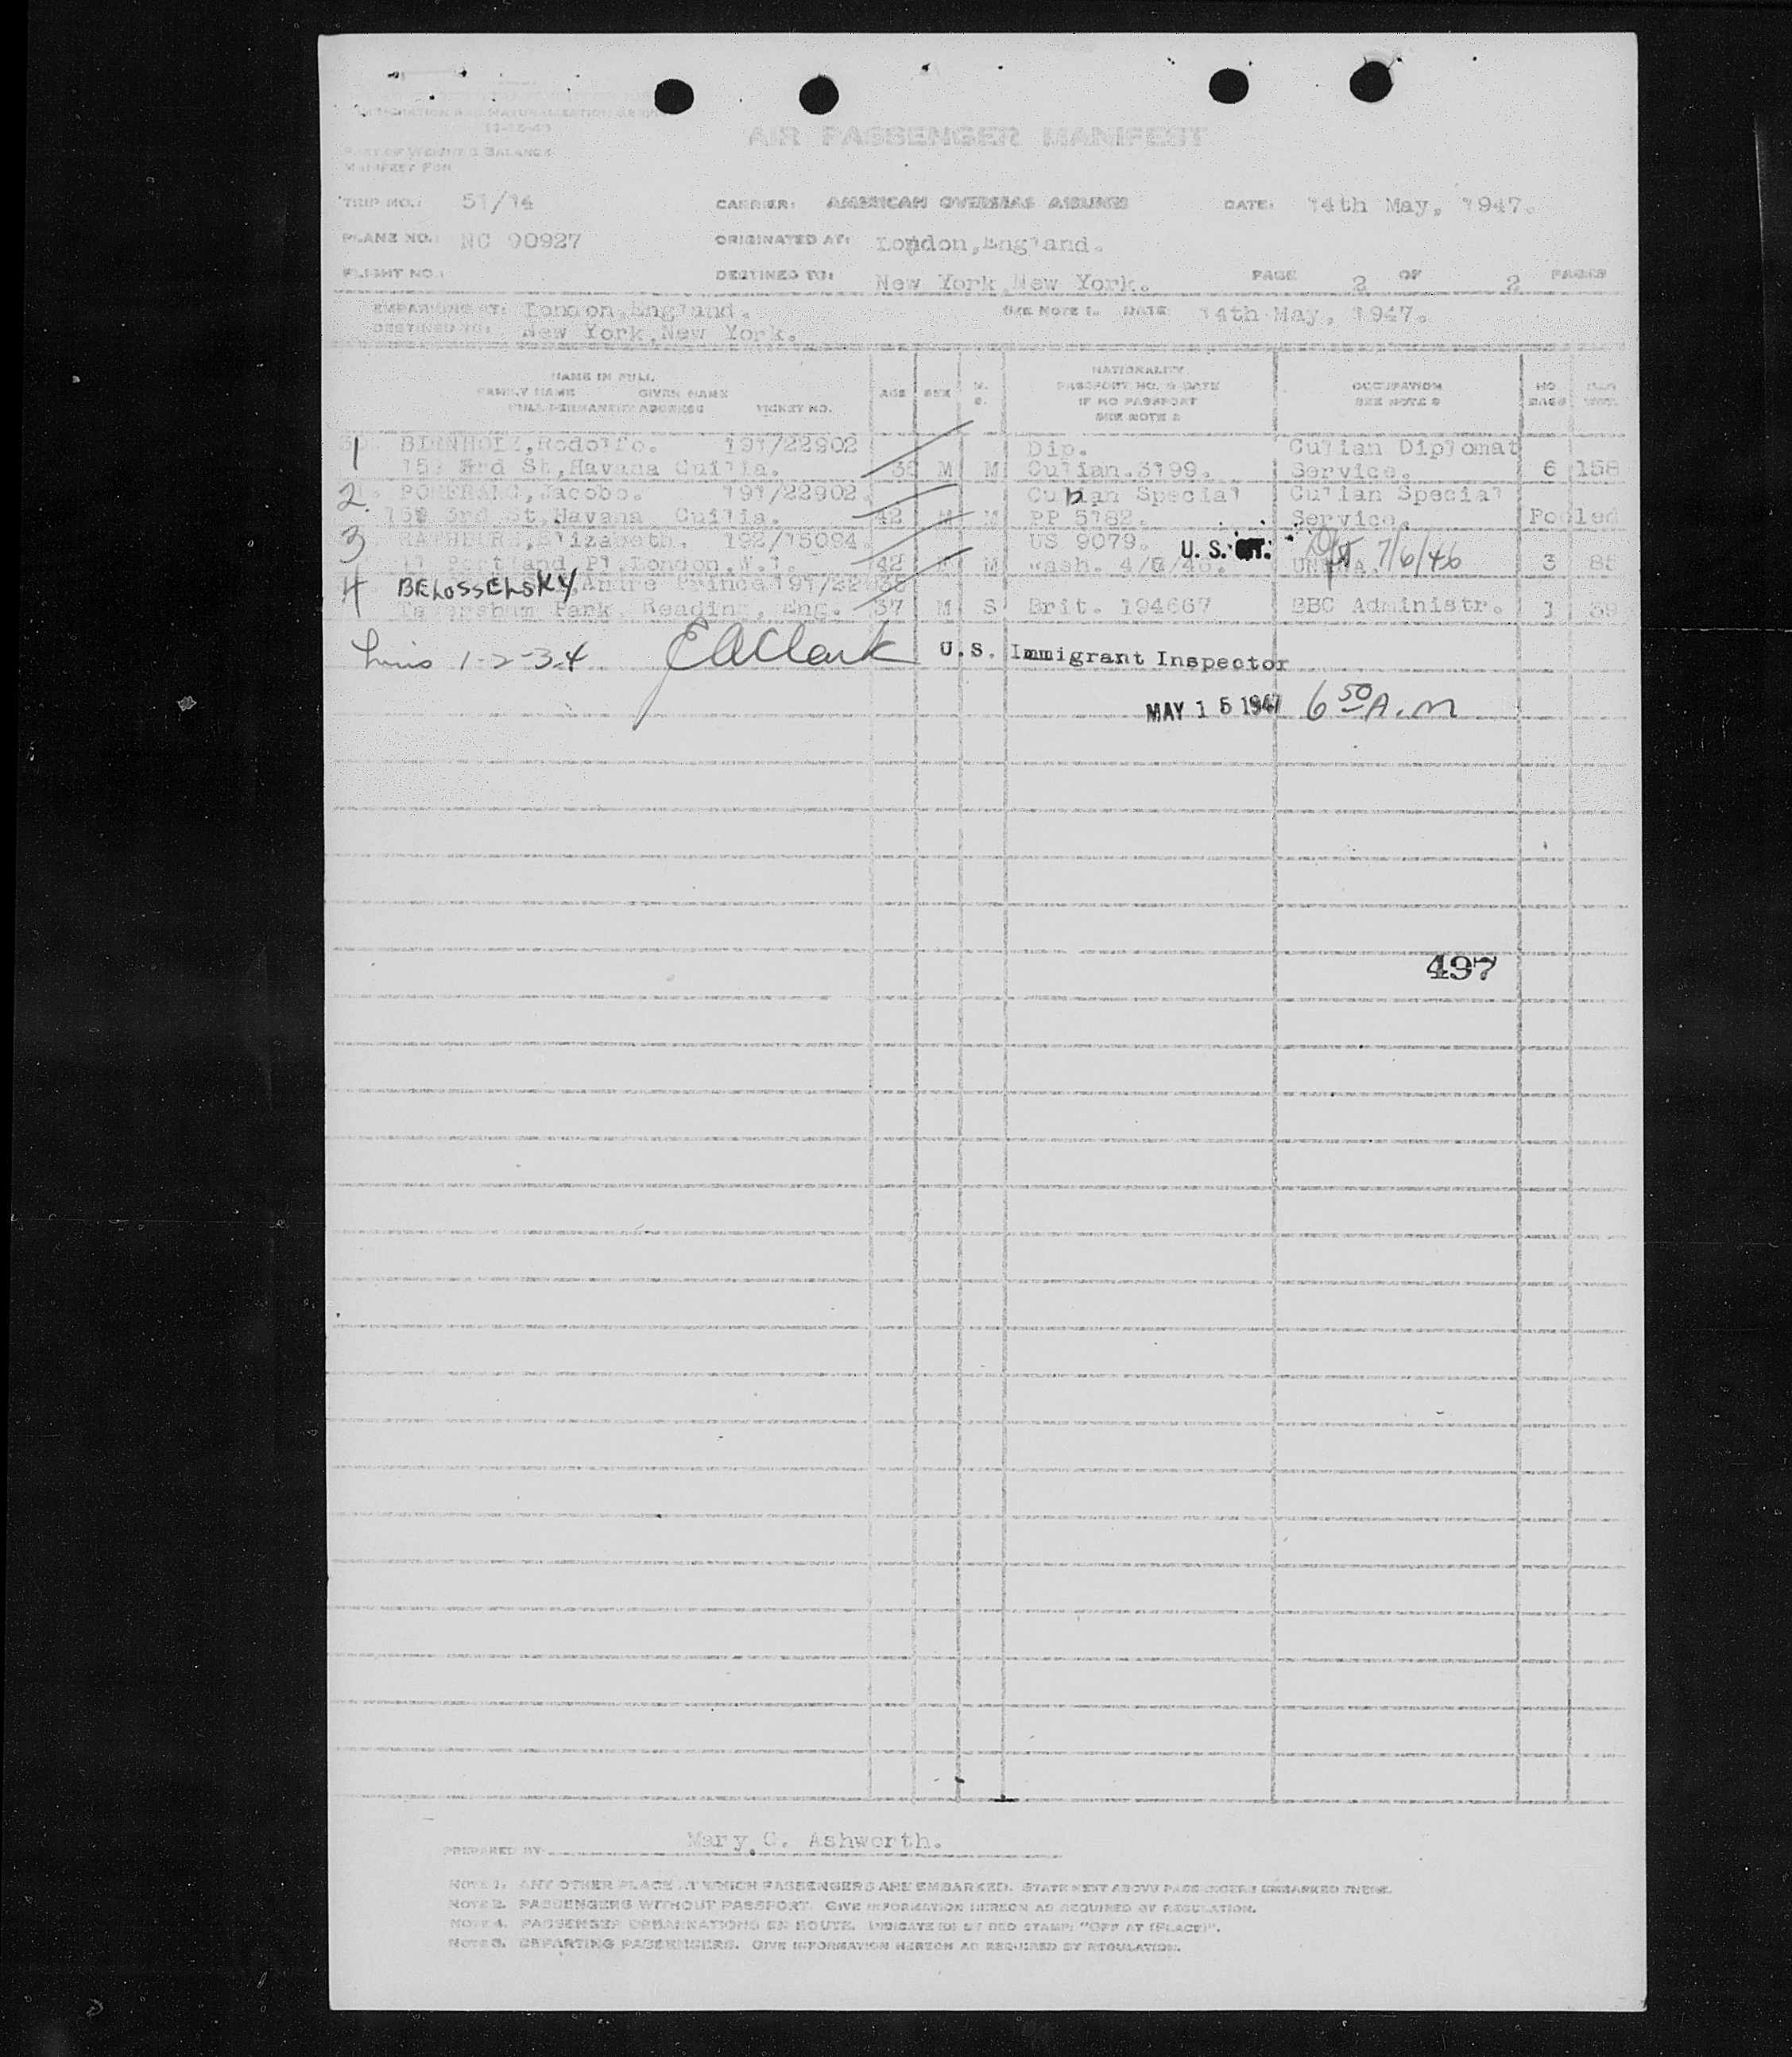 IMMIGRATION AND NATURALIZATION SERVICE
AIR PASSENGER MANIFEST
PART OF WEIGHT & BALANCE
MANIFEST FOR
TRIP NO.: 51/14 CARRIER: AMERICAN OVERSEAS AIRLINES DATE: 14th May, 1947.
PLANE NO. NC 90927 ORIGINATED AT: London,England.
FLIGHT NO.: DESTINED TO: New York,New York. PAGE 2 OF 2 PAGES
EMBARKING AT: London,England. SEE NOTE 1. DATE 14th May, 1947.
DESTINED TO: New York,New York.
NAME IN FULL
FAMILY NAME GIVEN NAME
FULL PERMANENT ADDRESS TICKET NO.
AGE SEX M. S.
NATIONALITY
PASSPORT NO. & DATE
IF NO PASSPORT
SEE NOTE 2
OCCUPATION
SEE NOTE 2
NO BAGS
1 BIRNHOLZ,Rodolfo. 191/22902 Dip. Cutian Diplomat
3rd St,Havana M M Cutian.3199. Service. 6 158
2. Jacobo. 191/22902. Cuban Special Cutian Special
3rd St,Havana 42 M M PP 5182. Service. Pooled
3 Elizabeth. 192/15094. US 9079. U.S. 7/6/46
Portland Pl.London,W.1. 42 M Wash. 3
4 BELOSSELSKY,Andre Prince
Park, Reading, Eng. 37 M S Brit. 194667 BBC Administr. 1 39
1-2-3-4 E A Clark U.S. Immigrant Inspector
MAY 15 1947 6 50 A.M
497
PREPARED BY Mary C. Ashworth.
NOTE 1. ANY OTHER PLACE AT WHICH PASSENGERS ARE EMBARKED. STATEMENT ABOVE PASSENGERS EMBARKED THERE.
NOTE 2. PASSENGERS WITHOUT PASSPORT. GIVE INFORMATION HEREON AS REQUIRED BY REGULATION.
NOTE 4. PASSENGER DEBARKATIONS EN ROUTE. INDICATE ID BY RED STAMP: "OFF AT (PLACE)".
NOTE 3. DEPARTING PASSENGERS. GIVE INFORMATION HEREON AS REQUIRED BY REGULATION.